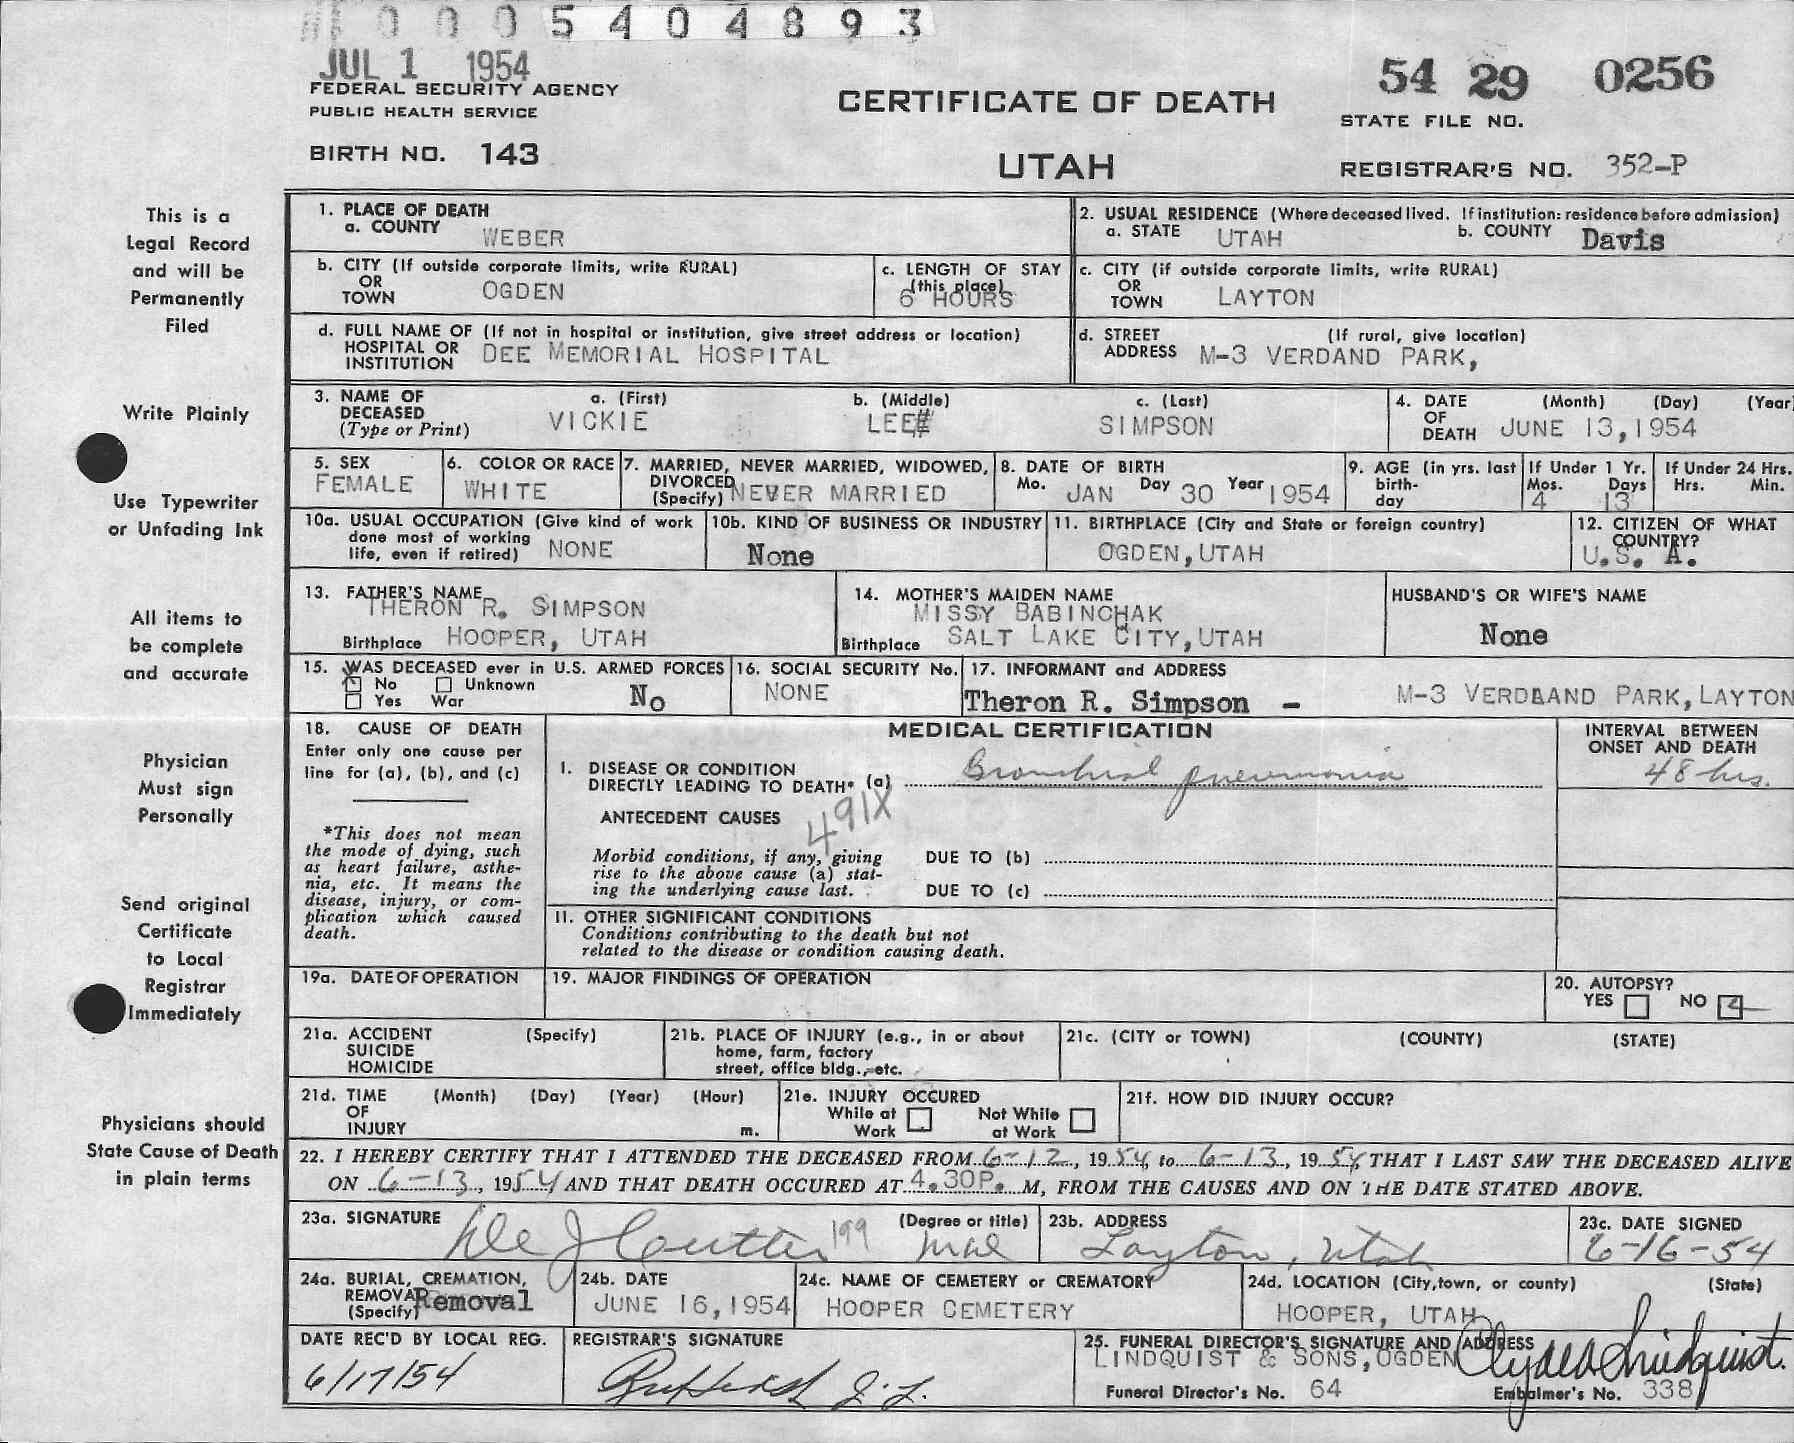 0005404893
JUL 1 1954
FEDERAL SECURITY AGENCY
PUBLIC HEALTH SERVICE
BIRTH NO. 143
CERTIFICATE OF DEATH
UTAH
54 29 0256
STATE FILE NO.
REGISTRAR'S NO. 352-P
This is a
Legal Record
and will be
Permanently
Filed
Write Plainly
Use Typewriter
or Unfading Ink
All items to
be complete
and accurate
Physician
Must sign
Personally
Send original
Certificate
to Local
Registrar
Immediately
Physicians should
State Cause of Death
in plain terms
1. PLACE OF DEATH
a. COUNTY WEBER
2. USUAL RESIDENCE (Where deceased lived. If institution: residence before admission)
a. STATE UTAH b. COUNTY Davis
b. CITY (If outside corporate limits, write RURAL)
OR
TOWN OGDEN
c. LENGTH OF STAY
(this place)
6 HOURS
c. CITY (if outside corporate limits, write RURAL)
OR
TOWN LAYTON
d. FULL NAME OF (If not in hospital or institution, give street address or location)
HOSPITAL OR
INSTITUTION DEE MEMORIAL HOSPITAL
d. STREET (If rural, give location)
ADDRESS M-3 VERDAND PARK,
3. NAME OF
DECEASED
(Type or Print)
a. (First) VICKIE
b. (Middle) LEE
c. (Last) SIMPSON
4. DATE (Month) (Day) (Year)
OF
DEATH JUNE 13, 1954
5. SEX
FEMALE
6. COLOR OR RACE
WHITE
7. MARRIED, NEVER MARRIED, WIDOWED,
DIVORCED
(Specify) NEVER MARRIED
8. DATE OF BIRTH
Mo. JAN Day 30 Year 1954
9. AGE (in yrs. last
birth-
day
If Under 1 Yr.
Mos. Days
4 13
If Under 24 Hrs.
Hrs. Min.
10a. USUAL OCCUPATION (Give kind of work
done most of working
life, even if retired) NONE
10b. KIND OF BUSINESS OR INDUSTRY
None
11. BIRTHPLACE (City and State or foreign country)
OGDEN, UTAH
12. CITIZEN OF WHAT
COUNTRY?
U.S. A.
13. FATHER'S NAME
THERON R. SIMPSON
Birthplace HOOPER, UTAH
14. MOTHER'S MAIDEN NAME
MISSY BABINCHAK
Birthplace SALT LAKE CITY, UTAH
HUSBAND'S OR WIFE'S NAME
None
15. WAS DECEASED ever in U.S. ARMED FORCES
No Unknown
Yes War No
16. SOCIAL SECURITY No.
NONE
17. INFORMANT and ADDRESS
Theron R. Simpson - M-3 VERDLAND PARK, LAYTON
18. CAUSE OF DEATH
Enter only one cause per
line for (a), (b), and (c)
*This does not mean
the mode of dying, such
as heart failure, asthe-
nia, etc. It means the
disease, injury, or com-
plication which caused
death.
MEDICAL CERTIFICATION
INTERVAL BETWEEN
ONSET AND DEATH
I. DISEASE OR CONDITION
DIRECTLY LEADING TO DEATH* (a) Bronchial pneumonia 48 hrs.
491X
ANTECEDENT CAUSES
Morbid conditions, if any, giving
rise to the above cause (a) stat-
ing the underlying cause last.
DUE TO (b)
DUE TO (c)
II. OTHER SIGNIFICANT CONDITIONS
Conditions contributing to the death but not
related to the disease or condition causing death.
19a. DATE OF OPERATION
19. MAJOR FINDINGS OF OPERATION
20. AUTOPSY?
YES NO
21a. ACCIDENT (Specify)
SUICIDE
HOMICIDE
21b. PLACE OF INJURY (e.g., in or about
home, farm, factory
street, office bldg., etc.
21c. (CITY or TOWN) (COUNTY) (STATE)
21d. TIME (Month) (Day) (Year) (Hour)
OF
INJURY m.
21e. INJURY OCCURED
While at Work
Not While at Work
21f. HOW DID INJURY OCCUR?
22. I HEREBY CERTIFY THAT I ATTENDED THE DECEASED FROM 6-12, 1954, to 6-13, 1954, THAT I LAST SAW THE DECEASED ALIVE
ON 6-13, 1954 AND THAT DEATH OCCURED AT 4.30P. M, FROM THE CAUSES AND ON THE DATE STATED ABOVE.
23a. SIGNATURE (Degree or title)
199
23b. ADDRESS
Layton, Utah
23c. DATE SIGNED
6-16-54
24a. BURIAL, CREMATION,
REMOVAL
(Specify) Removal
24b. DATE
JUNE 16, 1954
24c. NAME OF CEMETERY or CREMATORY
HOOPER CEMETERY
24d. LOCATION (City, town, or county) (State)
HOOPER, UTAH
DATE REC'D BY LOCAL REG.
6/17/54
REGISTRAR'S SIGNATURE
25. FUNERAL DIRECTOR'S SIGNATURE AND ADDRESS
LINDQUIST & SONS, OGDEN Clyde Lindquist.
Funeral Director's No. 64 Embalmer's No. 338